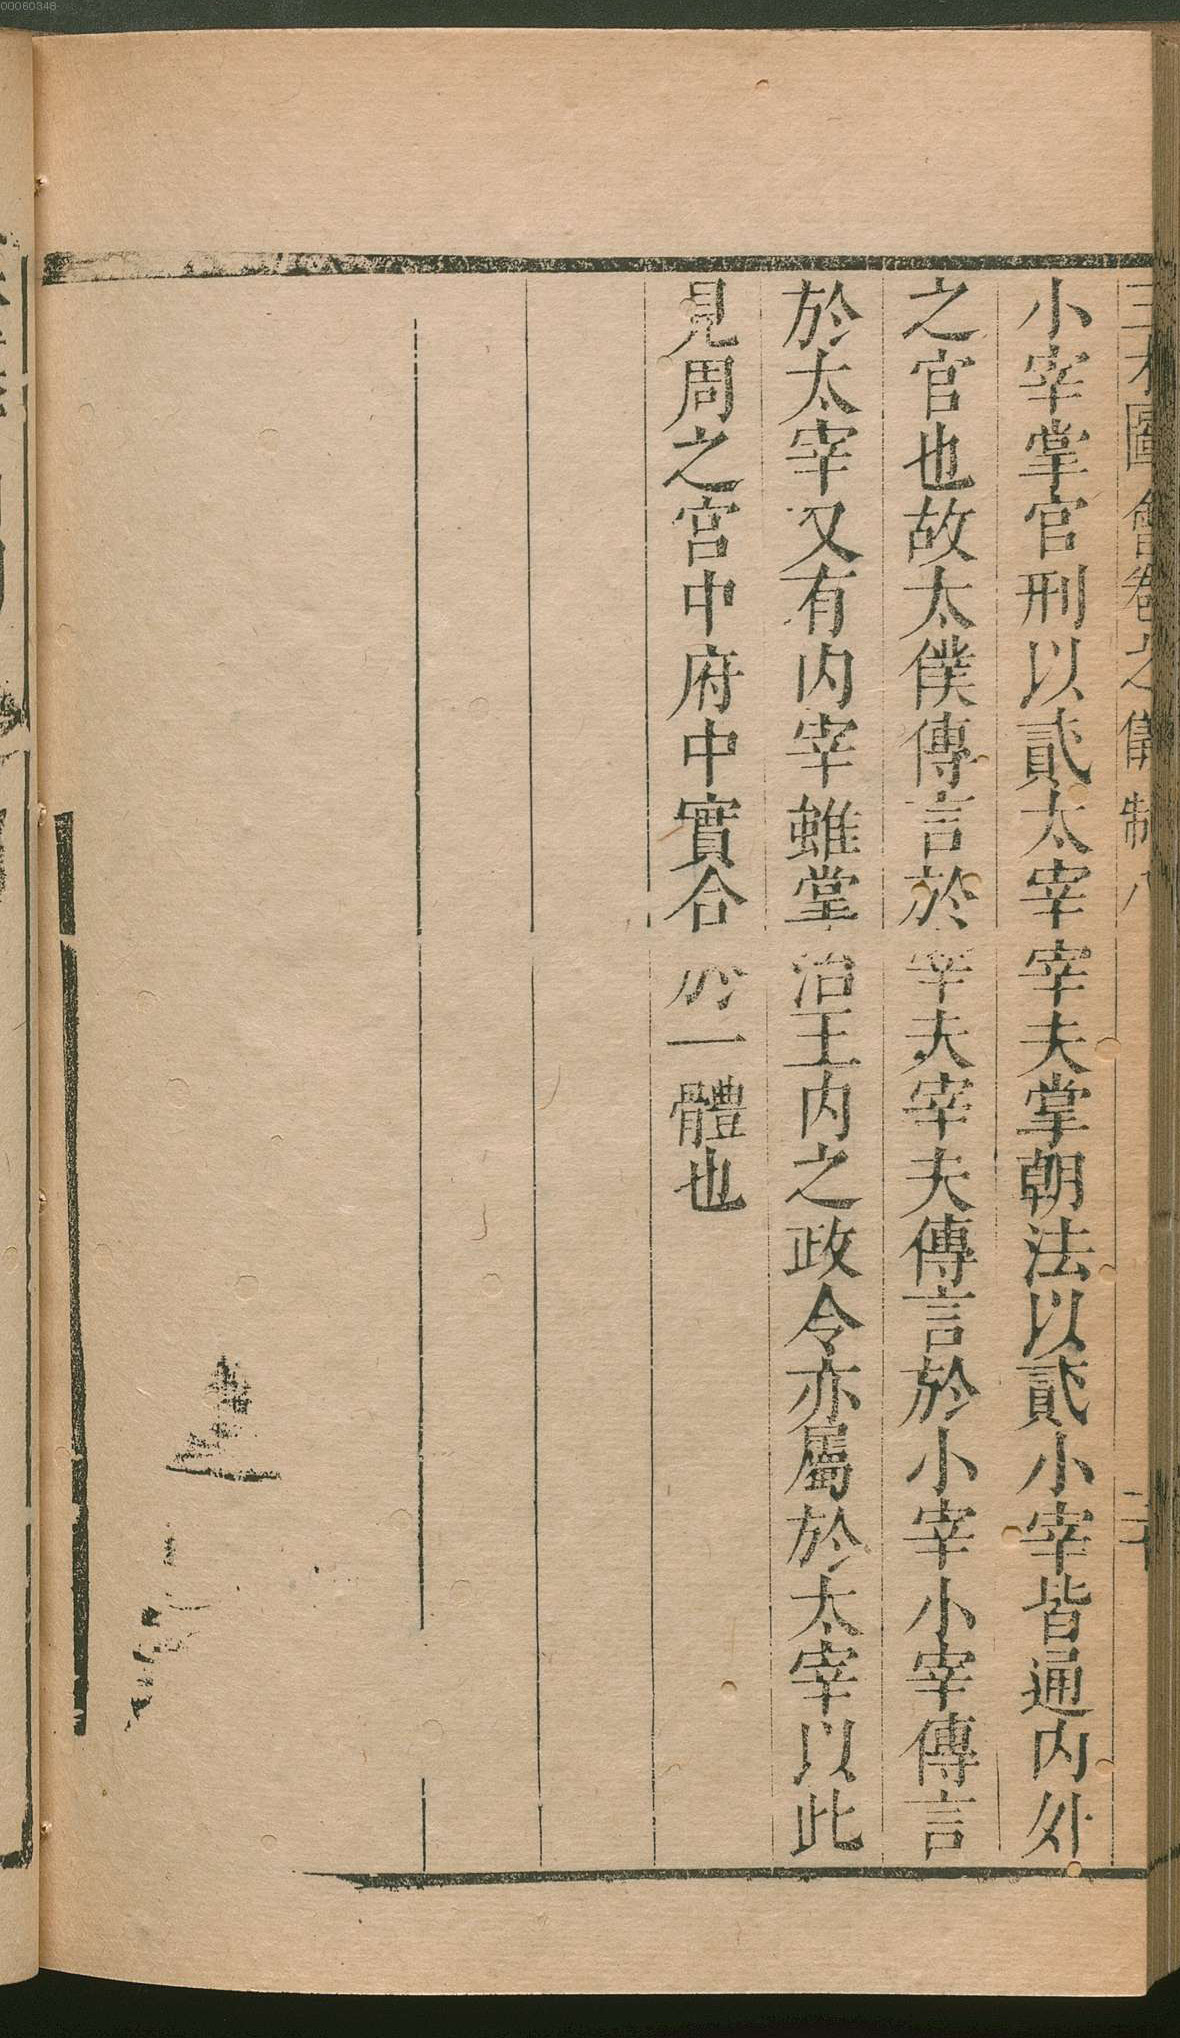 00060348
三才圖會卷之儀制八 二十
小宰掌官刑以貳太宰宰夫掌朝法以貳小宰皆通内外
之官也故太僕傳言於宰夫宰夫傳言於小宰小宰傳言
於太宰又有内宰雖掌治王内之政令亦屬於太宰以此
見周之宮中府中實合於一體也